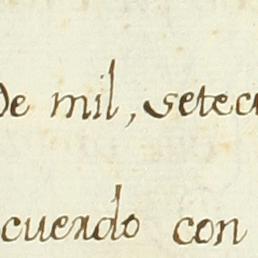 de mil, setec
cuerdo con